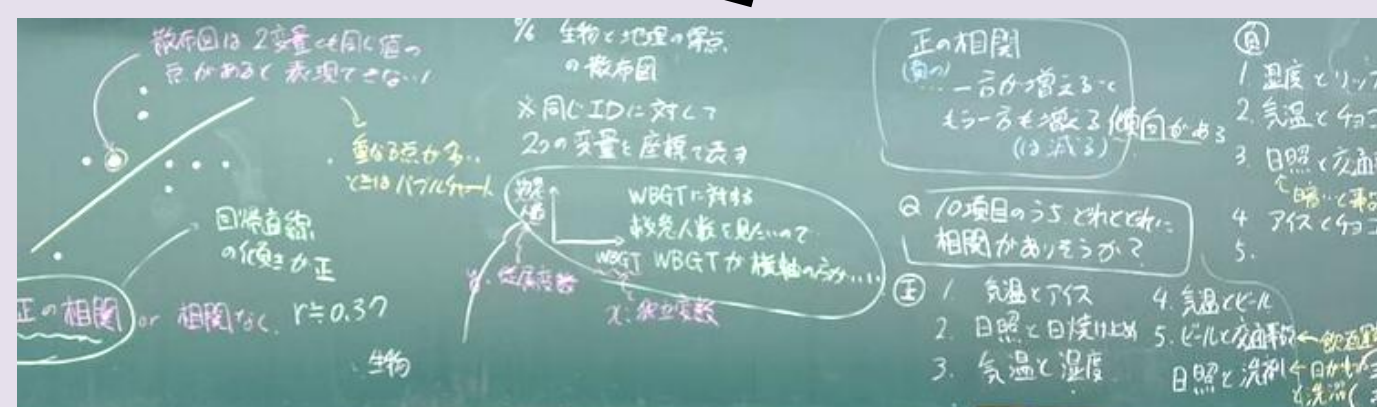 散布図は2変量とも同じ値の
点があると表現できない!
重なる点が多い
ときはバブルチャート
回帰直線
の傾きが正
正の相関 or 相関なし r≒0.37
生物
% 生物と地理の得点
の散布図
※同じIDに対して
2つの変量を座標で表す
人数
WBGT
WBGTに対する
救急人数を見たいので
WBGTが横軸の方がいい...
y:従属変数
x:独立変数
正の相関
(負の)
一方が増えると
もう一方も増える傾向がある
(は減る)
Q 10項目のうちどれとどれに
相関がありそうか?
正 1. 気温とアイス
2. 日照と日焼け止め
3. 気温と湿度
4. 気温とビール
5. ビールと交通事故←飲酒運
日照と洗剤←日が
と洗濯(
負
1. 湿度とリップ
2. 気温とチョコ
3. 日照と交通
暗いと事
4 アイスとチョコ
5.